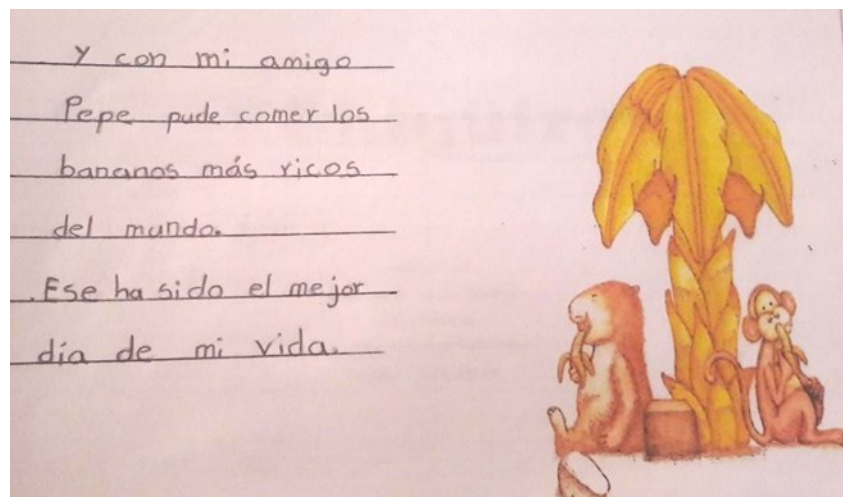 y con mi amigo
Pepe pude comer los
bananos más ricos
del mundo.
.Ese ha sido el mejor
día de mi vida.